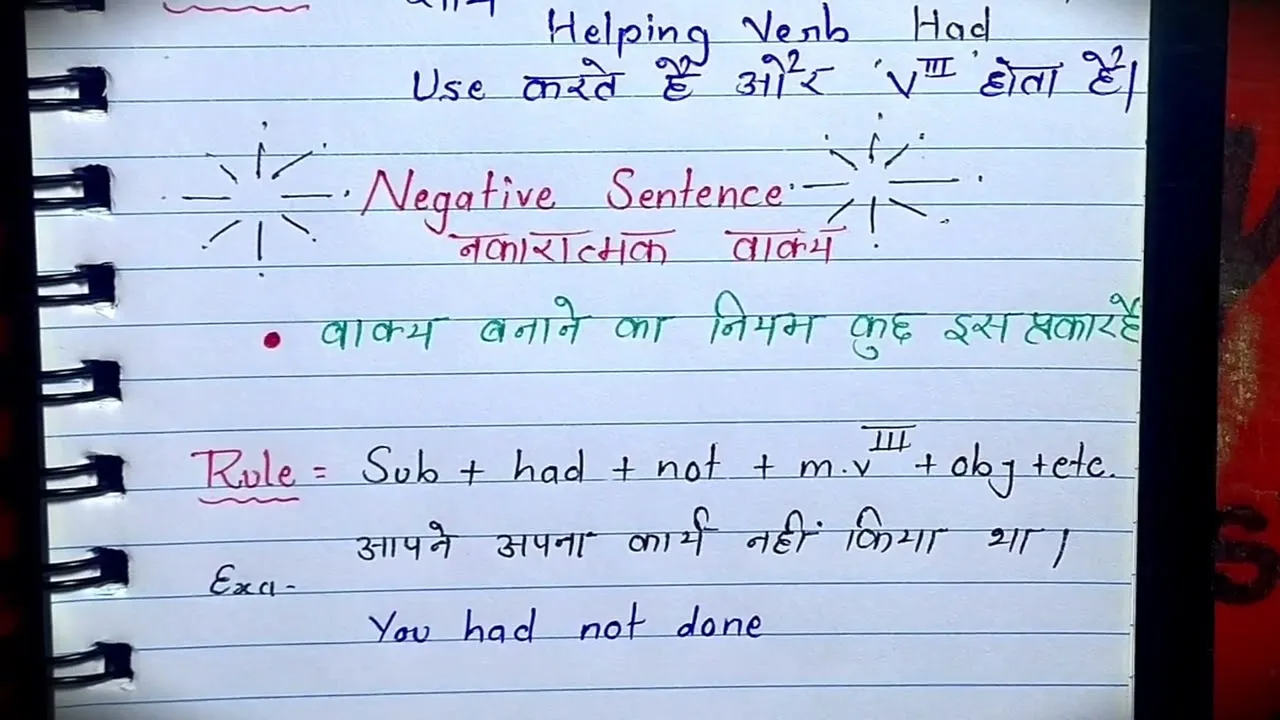 Helping Verb Had
Use करते हैं और 'V^III' होता है।
Negative Sentence
नकारात्मक वाक्य
• वाक्य बनाने का नियम कुछ इस प्रकार है
Rule = Sub + had + not + m.v^III + obj + etc.
आपने अपना कार्य नहीं किया था।
Exa-
You had not done